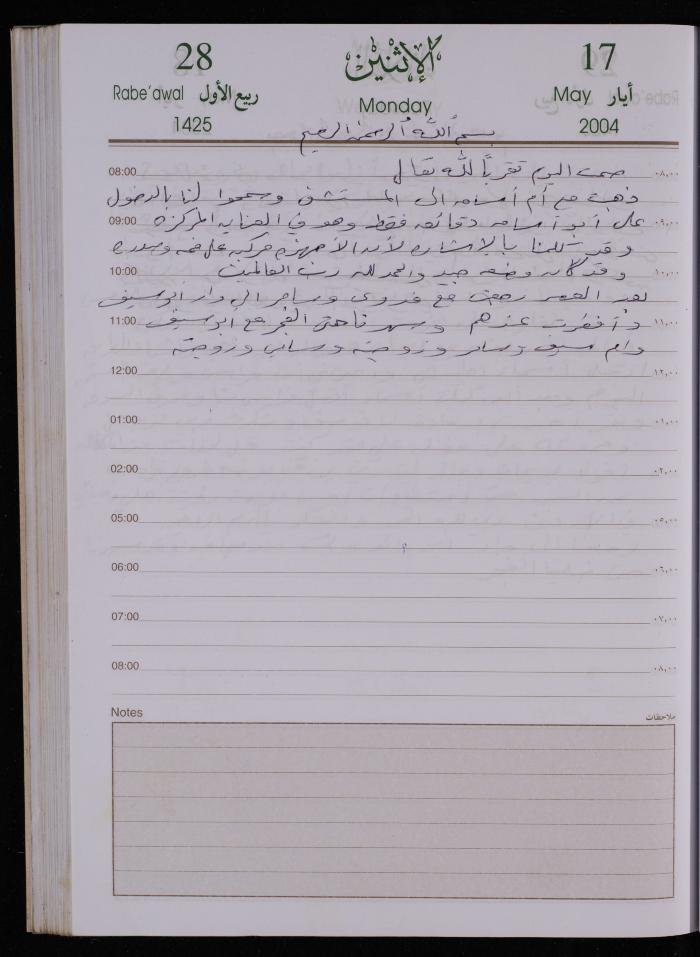 28 الإثنين 17
Rabe'awal ربيع الأول Monday May أيار
1425 2004
بسم الله الرحمن الرحيم
08:00 صمت اليوم تقرباً لله تعالى ٠٨,٠٠
ذهبت مع أم أسامه الى المستشفى وسمحوا لنا بالدخول
09:00 على أبو أسامه دقائق فقط وهو في العنايه المركزة ٠٩,٠٠
وقد تكلمنا بالإشاره لأن الأجهزه مركبه على فمه وصدره
10:00 وقد كان وضعه جيد والحمد لله رب العالمين ١٠,٠٠
بعد العصر رجعت مع فدوى وسامر الى دار ابو سيف
11:00 وأفطرت عندهم وسهرنا حتى الفجر مع أبو سيف ١١,٠٠
وام سيف وسامر وزوجته وزوجته
12:00 ١٢,٠٠
01:00 ٠١,٠٠
02:00 ٠٢,٠٠
05:00 ٠٥,٠٠
06:00 ٠٦,٠٠
07:00 ٠٧,٠٠
08:00 ٠٨,٠٠
Notes ملاحظات